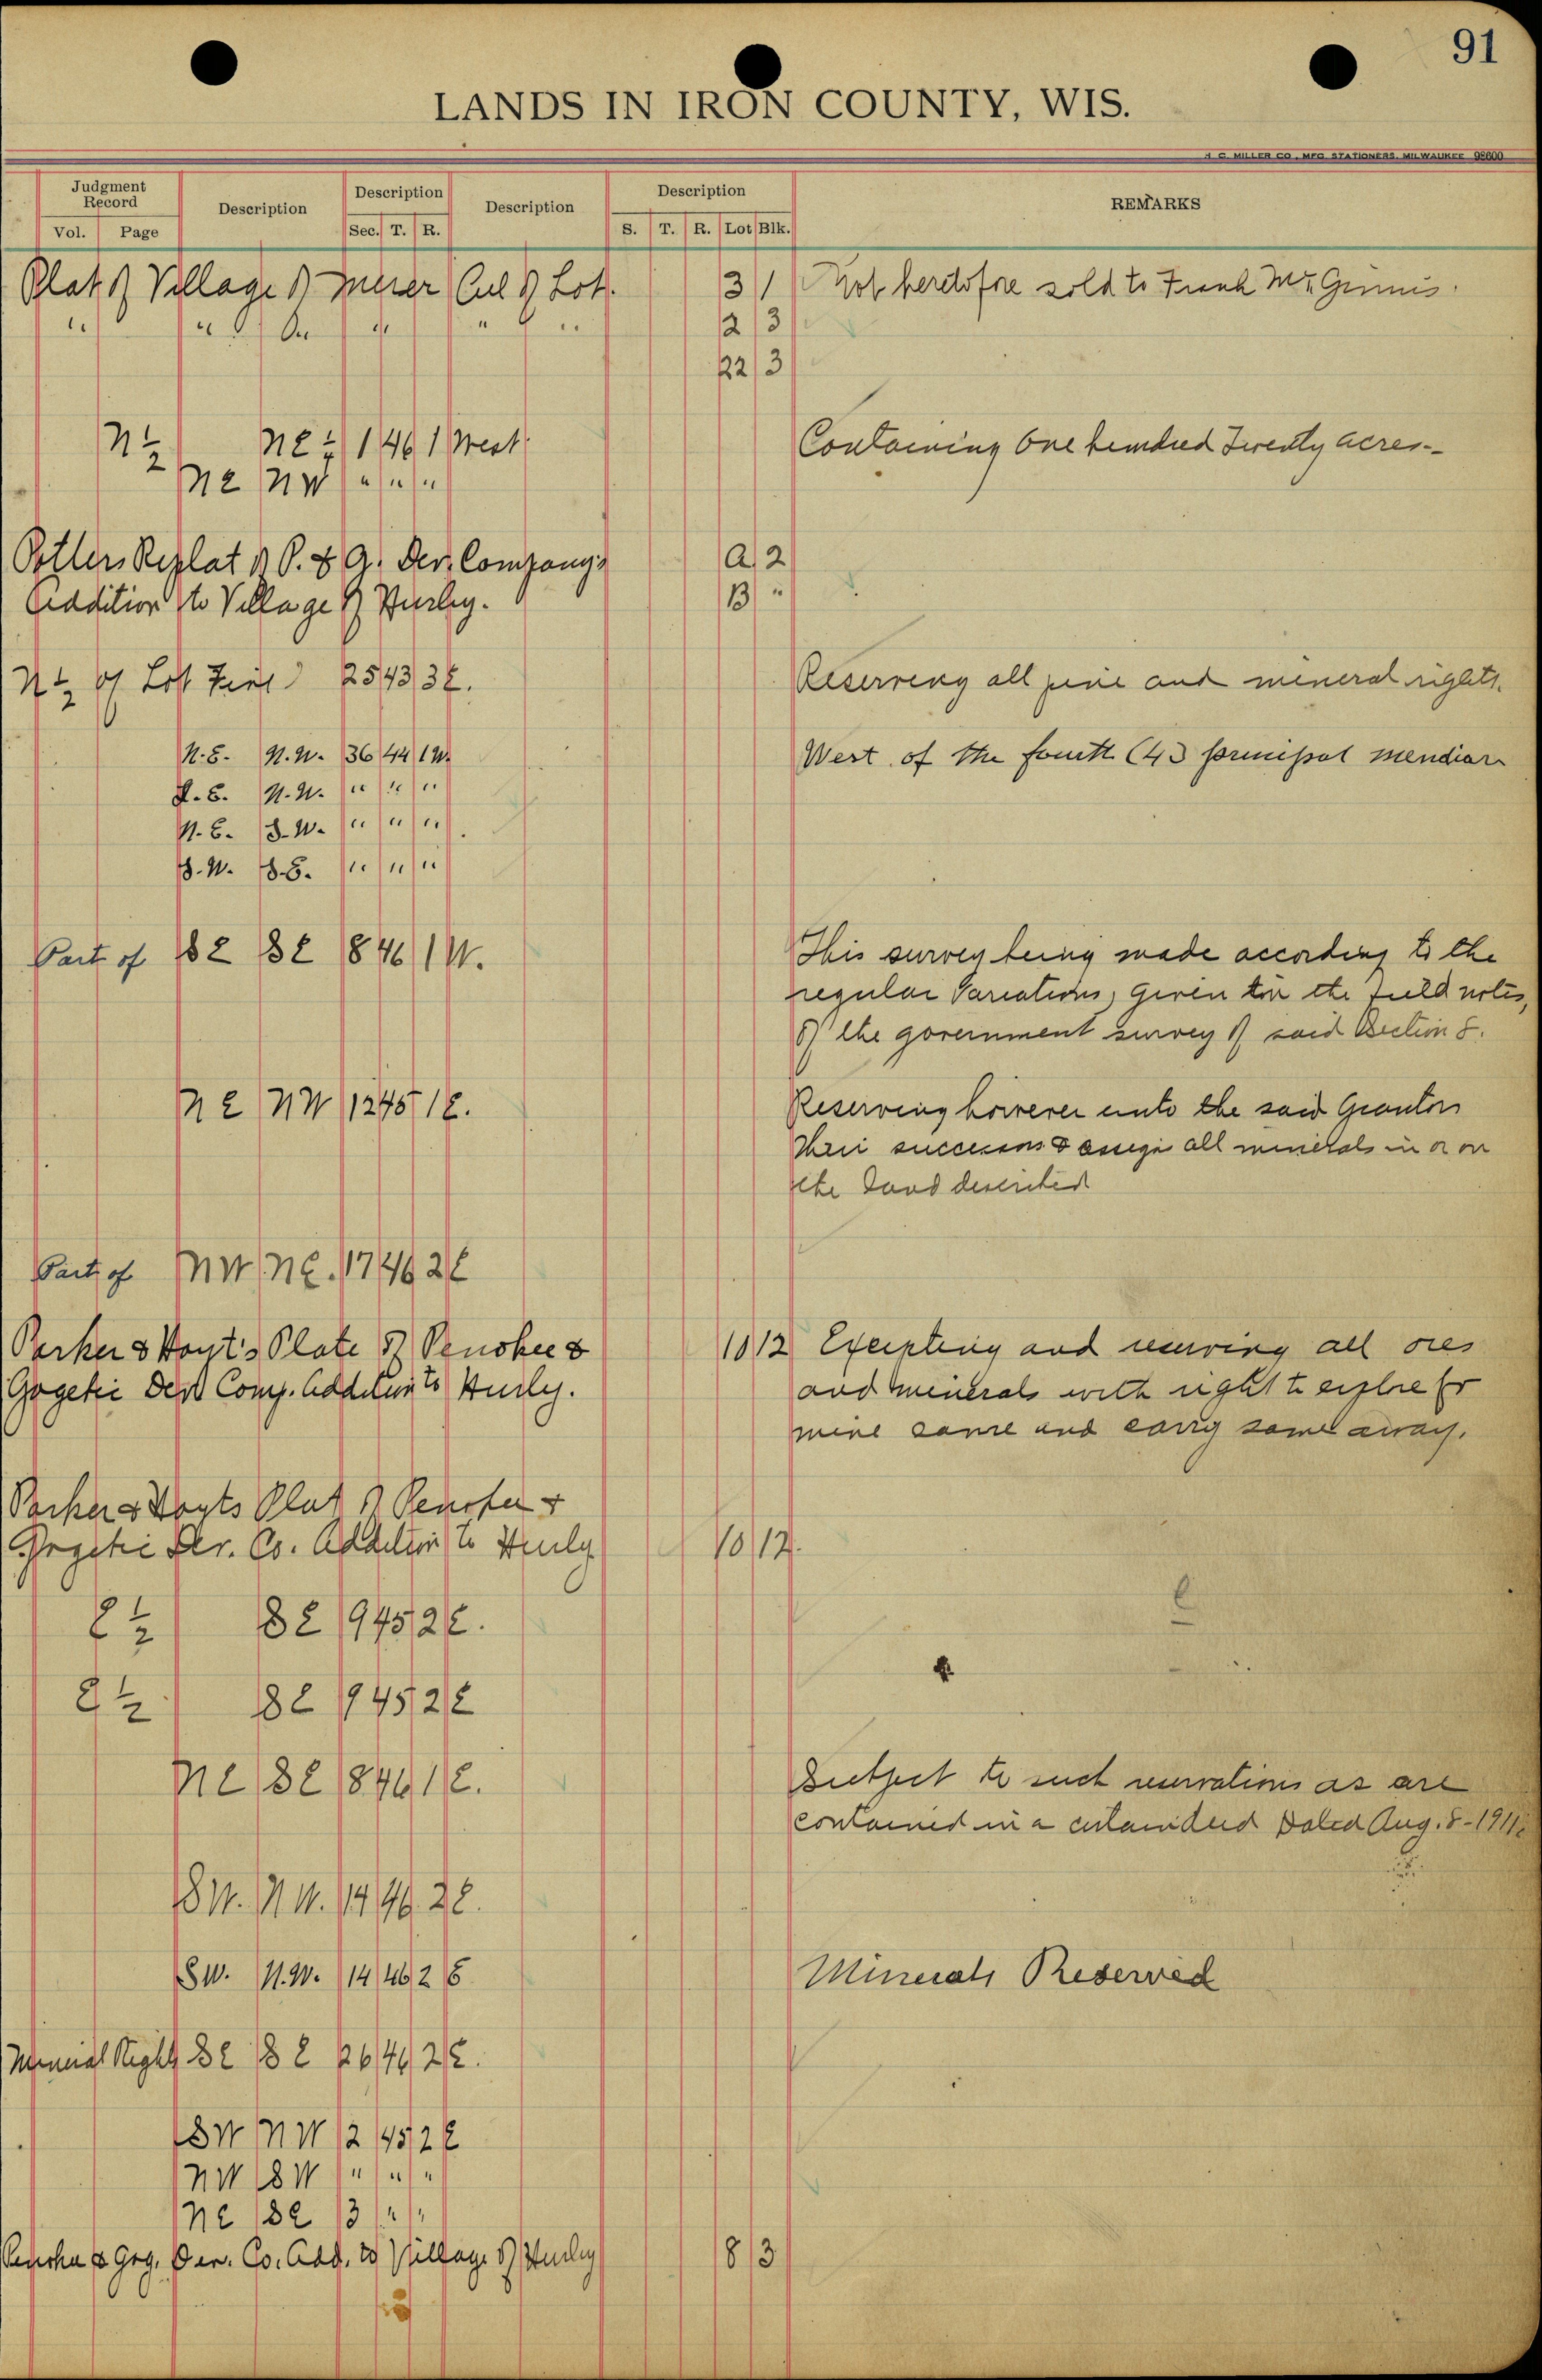 91
LANDS IN IRON COUNTY, WIS.
H. C. MILLER CO., MFG. STATIONERS, MILWAUKEE 98600
Judgment Record Description Description Description Description REMARKS
Vol. Page Sec. T. R. S. T. R. Lot Blk.
Plat of Village of Mercer All of Lot. 3 1 Not heretofore sold to Frank McGinnis.
" " " " " 2 3
22 3
N½ NE¼ 1 46 1 West. Containing One hundred Twenty acres--
NE NW " " "
Potters Replat of P. & G. Dev. Company's A 2
Addition to Village of Hurley. B "
N½ of Lot Five 25 43 3E. Reserving all pine and mineral rights.
N.E. N.W. 36 44 1W. West of the fourth (4) principal meridian
S.E. N.W. " " "
N.E. S.W. " " "
S.W. S.E. " " "
Part of SE SE 8 46 1 W. This survey being made according to the
regular variations, given in the field notes,
of the government survey of said Section 8.
NE NW 12 45 1E. Reserving however unto the said Grantors
their successors & assigns all minerals in or on
the land described
Part of NW NE. 17 46 2E
Parker & Hoyt's Plate of Penokee & 10 12 Excepting and reserving all ores
Gogebic Dev Comp. Addition to Hurley. and minerals with right to explore for
mine same and carry same away.
Parker & Hoyts Plat of Penokee &
Gogebic Dev. Co. Addition to Hurley 10 12.
E½ SE 9 45 2E.
E½ SE 9 45 2E
NE SE 8 46 1E. Subject to such reservations as are
contained in a certain deed Dated Aug. 8-1911.
SW. NW. 14 46 2E.
SW. N.W. 14 46 2E Minerals Reserved
Mineral Right SE SE 26 46 2E.
SW NW 2 45 2E
NW SW " " "
NE SE 3 " "
Penokee & Gog. Dev. Co. Add. to Village of Hurley 8 3